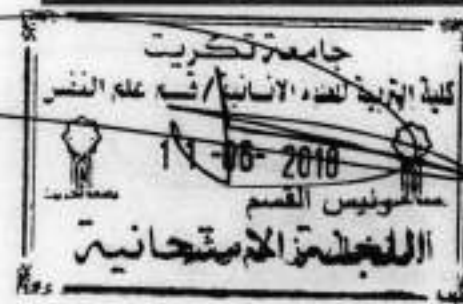 جامعة تكريت
كلية التربية للعلوم الانسانية / قسم علم النفس
11 -06- 2018
القسم
اللجنة الامتحانية